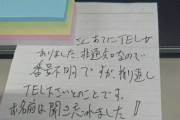 さんあてにTELが
ありました。非通知なので
番号不明ですが折り返し
TEL下さいとのことです。
お名前は聞き忘れました!